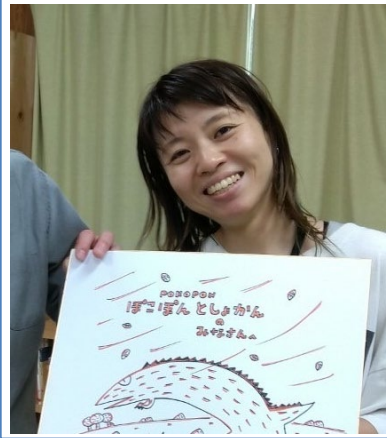 POKOPON
ぽこぽんとしょかん
の
みなさんへ